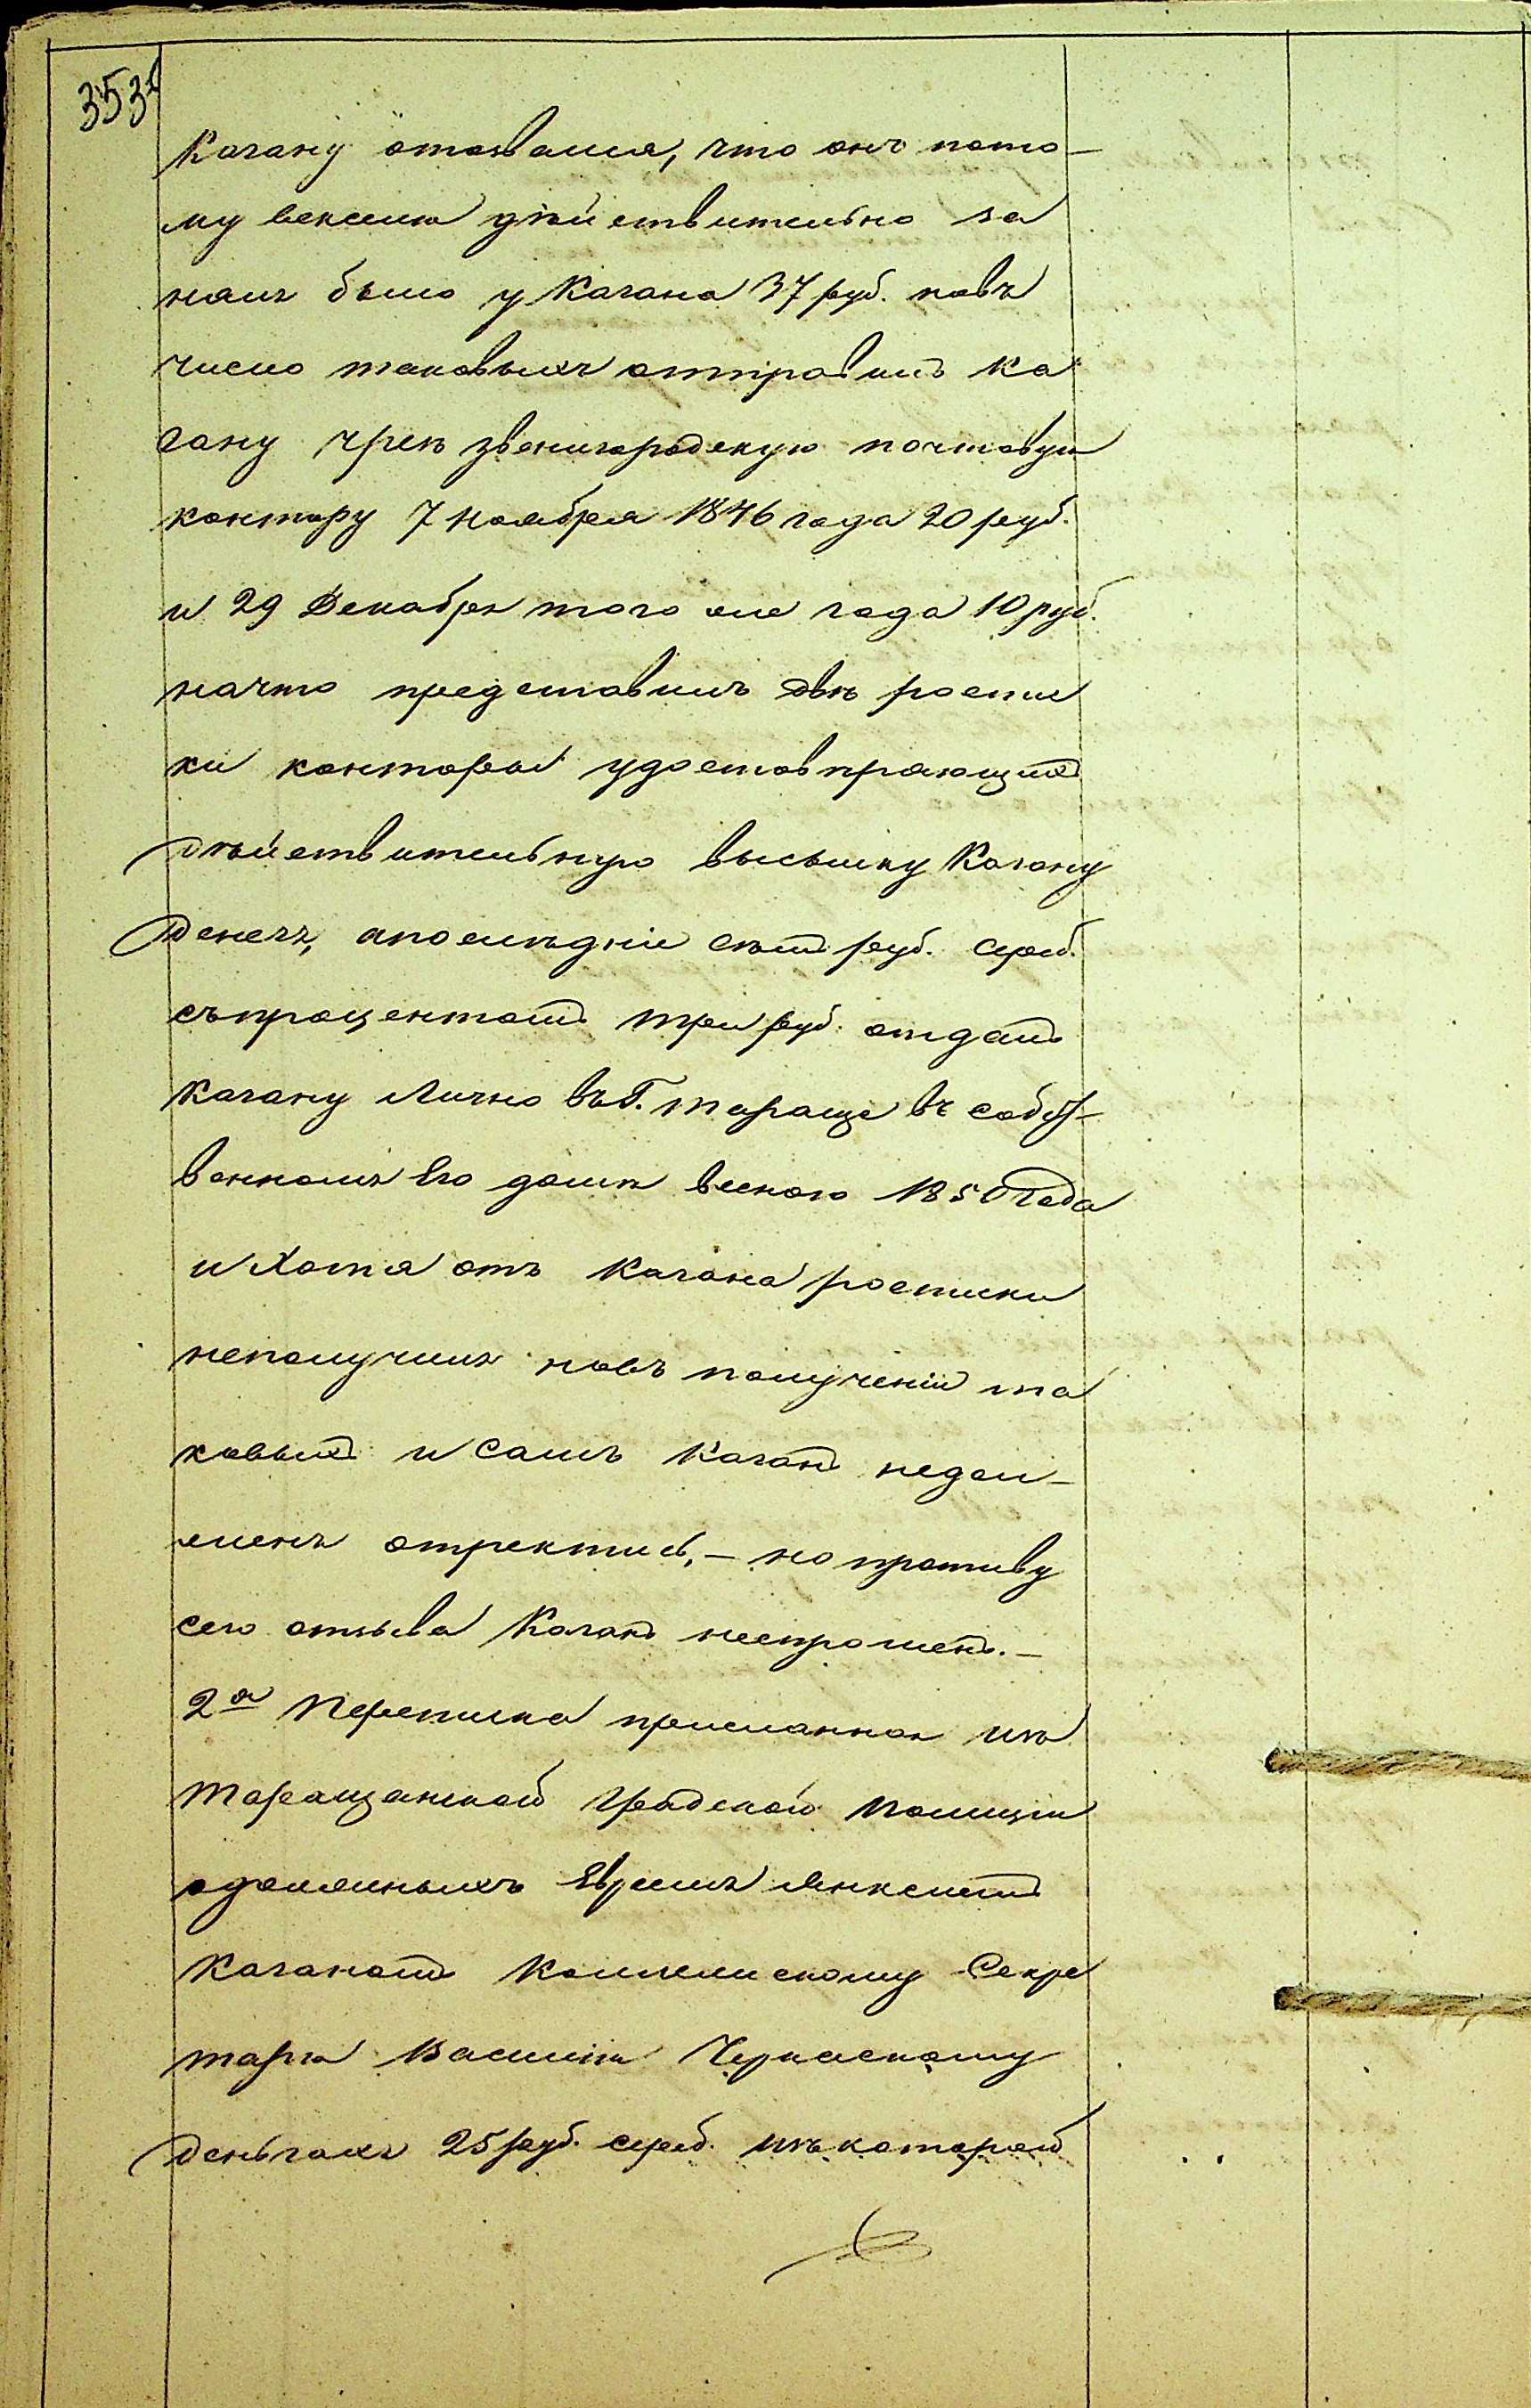 353
Кагану отозвался, что онъ пото-
му векселю дѣйствительно за
нялъ было у Кагана 37 руб. новъ
число таковыхъ отправилъ Ка
гану чрезъ звенигородскую почтовую
контору 7 Ноября 1846 года 20 руб.
и 29 Декабря того же года 10 руб.
начто представилъ двѣ роспис
ки конторы удостовѣряющихъ
дѣйствительную высылку Кагану
денегъ, апослѣднiе семъ руб. сереб.
съпроцентомъ три руб. отдалъ
Кагану Лично въ Г. Тараще въ собст-
венномъ Его домѣ весною 1850 Года
и Хотя отъ Кагана росписки
неполучилъ новъ полученiи та
ковыхъ и Самъ Каганъ недол-
женъ отректись, - но противу
сего отзыва Каганъ неспрошенъ. -
2я Переписка присланная изъ
Таращанской Градской Полицiи
одолженыхъ Евреемъ Янкелемъ
Каганомъ Коллежскому Секре
тарю Василiю Черкаскому
деньгахъ 25 руб. сереб. изъ которой